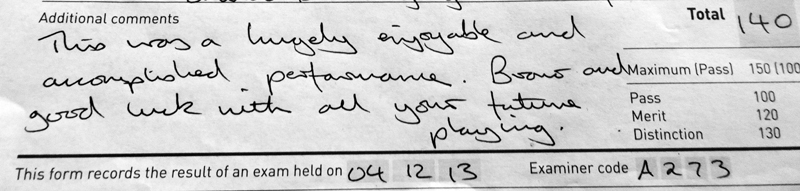 Additional comments
This was a hugely enjoyable and
accomplished performance. Bravo and
good luck with all your future
playing.
Total 140
Maximum (Pass) 150 (100
Pass 100
Merit 120
Distinction 130
This form records the result of an exam held on 04 12 13 Examiner code A273